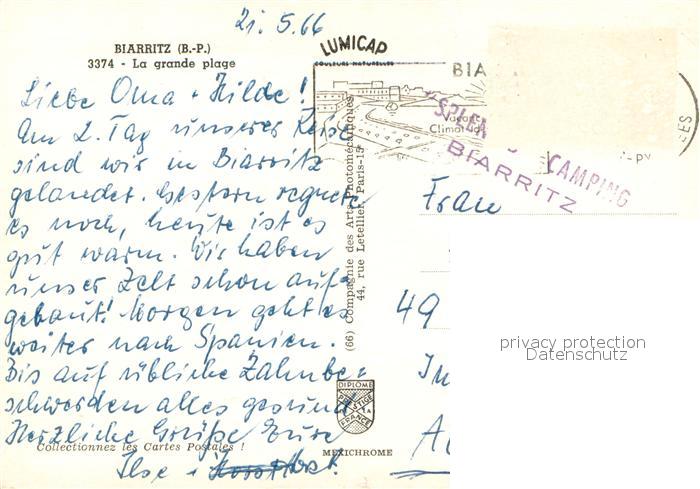 21.5.66
BIARRITZ (B.-P.)
3374 - La grande plage
LUMICAP
COULEURS NATURELLES
BIA
Vacanc
Climat
CAMPING
BIARRITZ
Liebe Oma + Hilde!
Am 2. Tag unserer Reise
sind wir in Biarritz
gelandet. Gestern regnete
es noch, heute ist es
gut warm. Wir haben
unser Zelt schon auf-
gebaut! Morgen geht es
weiter nach Spanien.
Bis auf übliche Zahnbe=
schwerden alles gesund
Herzliche Grüße Eure
Ilse +
(66) Compagnie des Arts Photomécaniques
44, rue Letellier, Paris-15e
Frau
49
DIPLOME
PRESTIGE
FRANCE
Collectionnez les Cartes Postales !
MEXICHROME
privacy protection
Datenschutz